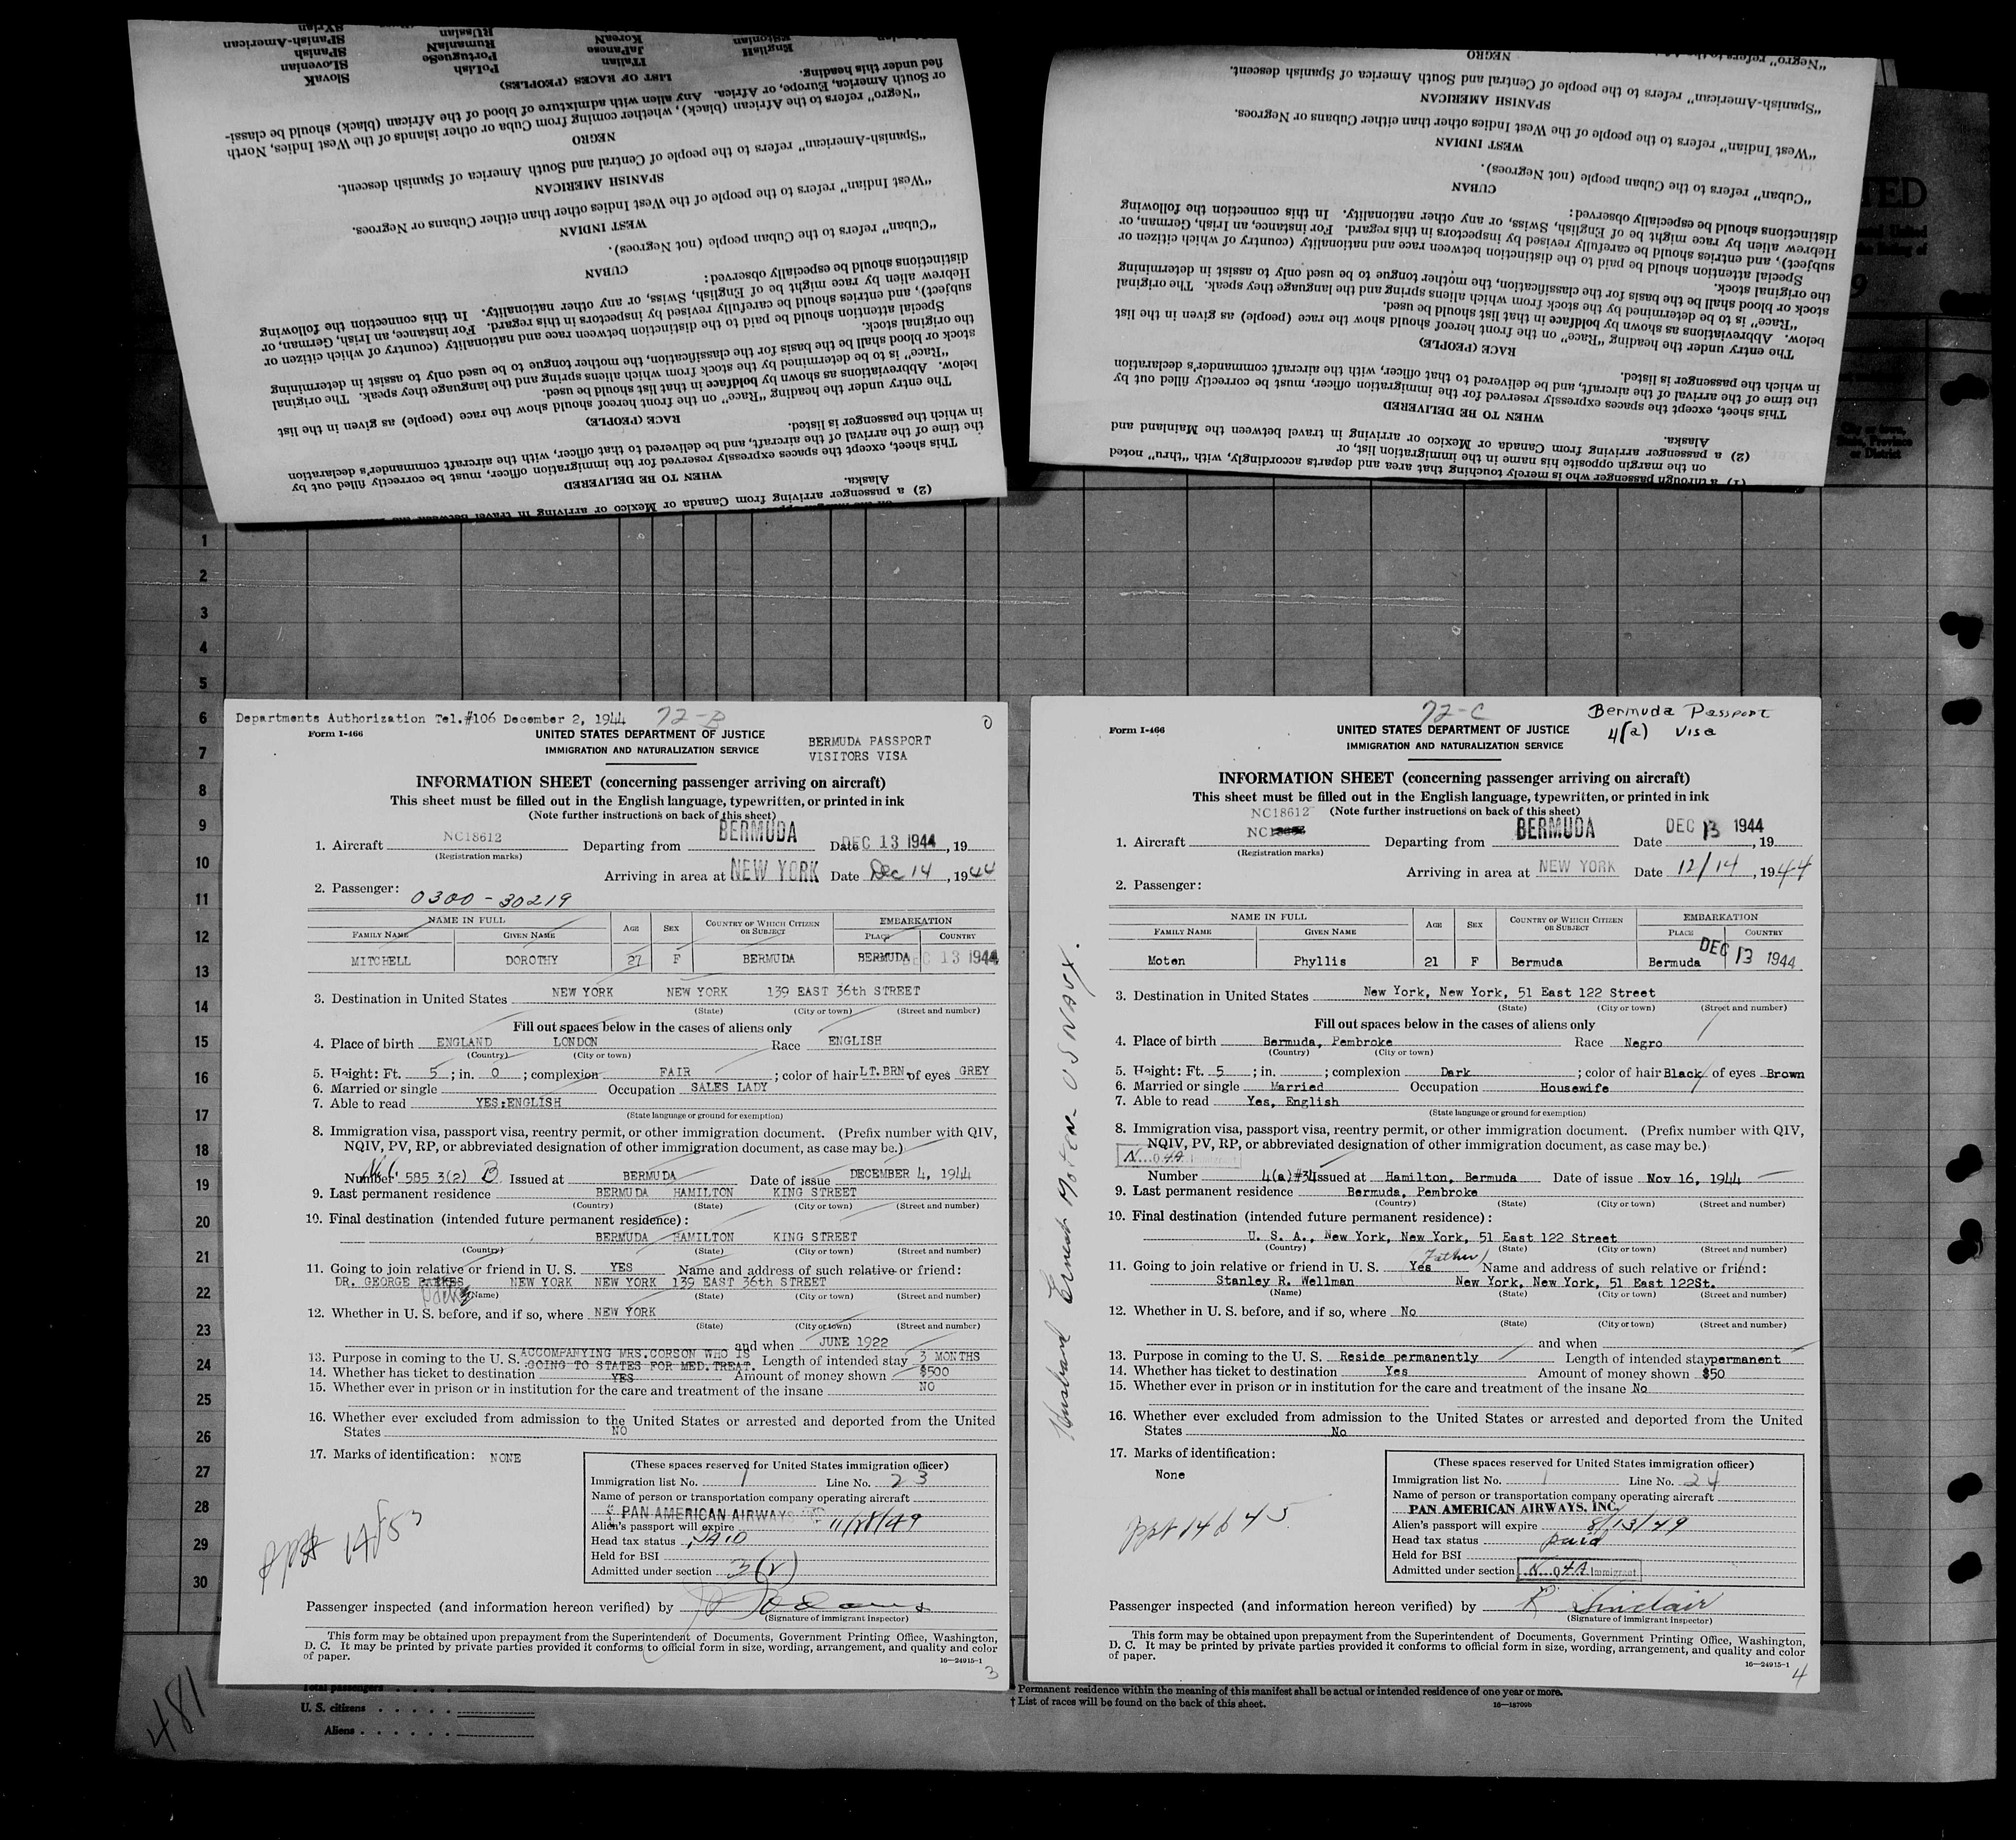 SlovaK
SLovenian
SPanish
SPanish-American
SYrian
PoLish
PortugueSe
RumaniaN
RUssian
ITalian
JaPanese
KoreaN
EngliSH
EStonian
LIST OF RACES (PEOPLES)
fied under this heading.
or South America, Europe, or Africa. Any alien with admixture of blood of the African (black) should be classi-
"Negro" refers to the African (black), whether coming from Cuba or other islands of the West Indies, North
NEGRO
"Spanish-American" refers to the people of Central and South America of Spanish descent.
SPANISH AMERICAN
"West Indian" refers to the people of the West Indies other than either Cubans or Negroes.
WEST INDIAN
"Cuban" refers to the Cuban people (not Negroes).
CUBAN
distinctions should be especially observed:
Hebrew alien by race might be of English, Swiss, or any other nationality. In this connection the following
subject), and entries should be carefully revised by inspectors in this regard. For instance, an Irish, German, or
Special attention should be paid to the distinction between race and nationality (country of which citizen or
the original stock.
stock or blood shall be the basis for the classification, the mother tongue to be used only to assist in determining
"Race" is to be determined by the stock from which aliens spring and the language they speak. The original
below. Abbreviations as shown by boldface in that list should be used.
The entry under the heading "Race" on the front hereof should show the race (people) as given in the list
RACE (PEOPLE)
in which the passenger is listed.
the time of the arrival of the aircraft, and be delivered to that officer, with the aircraft commander's declaration
This sheet, except the spaces expressly reserved for the immigration officer, must be correctly filled out by
WHEN TO BE DELIVERED
Alaska.
(2) a passenger arriving from Canada or Mexico or arriving in travel between the
"Negro" refers to
NEGRO
"Spanish-American" refers to the people of Central and South America of Spanish descent.
SPANISH AMERICAN
"West Indian" refers to the people of the West Indies other than either Cubans or Negroes.
WEST INDIAN
"Cuban" refers to the Cuban people (not Negroes).
CUBAN
distinctions should be especially observed:
Hebrew alien by race might be of English, Swiss, or any other nationality. In this connection the following
subject), and entries should be carefully revised by inspectors in this regard. For instance, an Irish, German, or
Special attention should be paid to the distinction between race and nationality (country of which citizen or
the original stock.
stock or blood shall be the basis for the classification, the mother tongue to be used only to assist in determining
"Race" is to be determined by the stock from which aliens spring and the language they speak. The original
below. Abbreviations as shown by boldface in that list should be used.
The entry under the heading "Race" on the front hereof should show the race (people) as given in the list
RACE (PEOPLE)
in which the passenger is listed.
the time of the arrival of the aircraft, and be delivered to that officer, with the aircraft commander's declaration
This sheet, except the spaces expressly reserved for the immigration officer, must be correctly filled out by
WHEN TO BE DELIVERED
Alaska.
(2) a passenger arriving from Canada or Mexico or arriving in travel between the Mainland and
on the margin opposite his name in the immigration list, or
(1) a through passenger who is merely touching that area and departs accordingly, with "thru" noted
TED
United
of
9
City or town,
State, Province
or District
1
2
3
4
5
6
7
8
9
10
11
12
13
14
15
16
17
18
19
20
21
22
23
24
25
26
27
28
29
30
Departments Authorization Tel.#106 December 2, 1944 72-B
0
Form I-466
UNITED STATES DEPARTMENT OF JUSTICE
IMMIGRATION AND NATURALIZATION SERVICE
BERMUDA PASSPORT
VISITORS VISA
INFORMATION SHEET (concerning passenger arriving on aircraft)
This sheet must be filled out in the English language, typewritten, or printed in ink
(Note further instructions on back of this sheet)
1. Aircraft NC18612 Departing from BERMUDA Date DEC 13 1944, 19
(Registration marks)
Arriving in area at NEW YORK Date Dec 14, 1944
2. Passenger:
0300-30219
NAME IN FULL AGE SEX COUNTRY OF WHICH CITIZEN OR SUBJECT EMBARKATION
FAMILY NAME GIVEN NAME PLACE COUNTRY
MITCHELL DOROTHY 27 F BERMUDA BERMUDA DEC 13 1944
3. Destination in United States NEW YORK NEW YORK 139 EAST 36th STREET
(State) (City or town) (Street and number)
Fill out spaces below in the cases of aliens only
4. Place of birth ENGLAND LONDON Race ENGLISH
(Country) (City or town)
5. Height: Ft. 5; in. 0; complexion FAIR; color of hair LT.BRN. of eyes GREY
6. Married or single Occupation SALES LADY
7. Able to read YES:ENGLISH
(State language or ground for exemption)
8. Immigration visa, passport visa, reentry permit, or other immigration document. (Prefix number with QIV,
NQIV, PV, RP, or abbreviated designation of other immigration document, as case may be.)
Number 585 3(2) B Issued at BERMUDA Date of issue DECEMBER 4, 1944
9. Last permanent residence BERMUDA HAMILTON KING STREET
(Country) (State) (City or town) (Street and number)
10. Final destination (intended future permanent residence):
BERMUDA HAMILTON KING STREET
(Country) (State) (City or town) (Street and number)
11. Going to join relative or friend in U. S. YES Name and address of such relative or friend:
DR. GEORGE PARKES NEW YORK NEW YORK 139 EAST 36th STREET
(Name) (State) (City or town) (Street and number)
12. Whether in U. S. before, and if so, where NEW YORK
(State) (City or town) (Street and number)
and when JUNE 1922
13. Purpose in coming to the U. S. ACCOMPANYING MRS.CORSON WHO IS
GOING TO STATES FOR MED.TREAT. Length of intended stay 3 MONTHS
14. Whether has ticket to destination YES Amount of money shown $500
15. Whether ever in prison or in institution for the care and treatment of the insane NO
16. Whether ever excluded from admission to the United States or arrested and deported from the United
States NO
17. Marks of identification: NONE
(These spaces reserved for United States immigration officer)
Immigration list No. 1 Line No. 23
Name of person or transportation company operating aircraft
PAN AMERICAN AIRWAYS
Alien's passport will expire 11/28/49
Head tax status PAID
Held for BSI
Admitted under section 3(2)
Passenger inspected (and information hereon verified) by
(Signature of immigrant inspector)
This form may be obtained upon prepayment from the Superintendent of Documents, Government Printing Office, Washington,
D. C. It may be printed by private parties provided it conforms to official form in size, wording, arrangement, and quality and color
of paper.
16—24915-1
3
72-C
Bermuda Passport
4(a) Visa
Form I-466
UNITED STATES DEPARTMENT OF JUSTICE
IMMIGRATION AND NATURALIZATION SERVICE
INFORMATION SHEET (concerning passenger arriving on aircraft)
This sheet must be filled out in the English language, typewritten, or printed in ink
(Note further instructions on back of this sheet)
NC18612
1. Aircraft Departing from BERMUDA Date DEC 13 1944, 19
(Registration marks)
Arriving in area at NEW YORK Date 12/14, 1944
2. Passenger:
NAME IN FULL AGE SEX COUNTRY OF WHICH CITIZEN OR SUBJECT EMBARKATION
FAMILY NAME GIVEN NAME PLACE COUNTRY
Moten Phyllis 21 F Bermuda Bermuda DEC 13 1944
3. Destination in United States New York, New York, 51 East 122 Street
(State) (City or town) (Street and number)
Fill out spaces below in the cases of aliens only
4. Place of birth Bermuda, Pembroke Race Negro
(Country) (City or town)
5. Height: Ft. 5; in. ; complexion Dark; color of hair Black of eyes Brown
6. Married or single Married Occupation Housewife
7. Able to read Yes, English
(State language or ground for exemption)
8. Immigration visa, passport visa, reentry permit, or other immigration document. (Prefix number with QIV,
NQIV, PV, RP, or abbreviated designation of other immigration document, as case may be.)
N 4A Immigrant
Number 4(a)#34 Issued at Hamilton, Bermuda Date of issue Nov 16, 1944
9. Last permanent residence Bermuda, Pembroke
(Country) (State) (City or town) (Street and number)
10. Final destination (intended future permanent residence):
U. S. A., New York, New York, 51 East 122 Street
(Country) (State) (City or town) (Street and number)
Father
11. Going to join relative or friend in U. S. Yes Name and address of such relative or friend:
Stanley R. Wellman New York, New York, 51 East 122St.
(Name) (State) (City or town) (Street and number)
12. Whether in U. S. before, and if so, where No
(State) (City or town) (Street and number)
and when
13. Purpose in coming to the U. S. Reside permanently Length of intended stay permanent
14. Whether has ticket to destination Yes Amount of money shown $50
15. Whether ever in prison or in institution for the care and treatment of the insane No
16. Whether ever excluded from admission to the United States or arrested and deported from the United
States No
17. Marks of identification:
None
(These spaces reserved for United States immigration officer)
Immigration list No. 1 Line No. 24
Name of person or transportation company operating aircraft
PAN AMERICAN AIRWAYS, INC.
Alien's passport will expire 8/13/49
Head tax status paid
Held for BSI
Admitted under section N 4A Immigrant
Passenger inspected (and information hereon verified) by R Sinclair
(Signature of immigrant inspector)
This form may be obtained upon prepayment from the Superintendent of Documents, Government Printing Office, Washington,
D. C. It may be printed by private parties provided it conforms to official form in size, wording, arrangement, and quality and color
of paper.
16—24915-1
4
Husband Ernest Moten - US Navy.
481
Total passengers
U. S. citizens
Aliens
* Permanent residence within the meaning of this manifest shall be actual or intended residence of one year or more.
† List of races will be found on the back of this sheet.